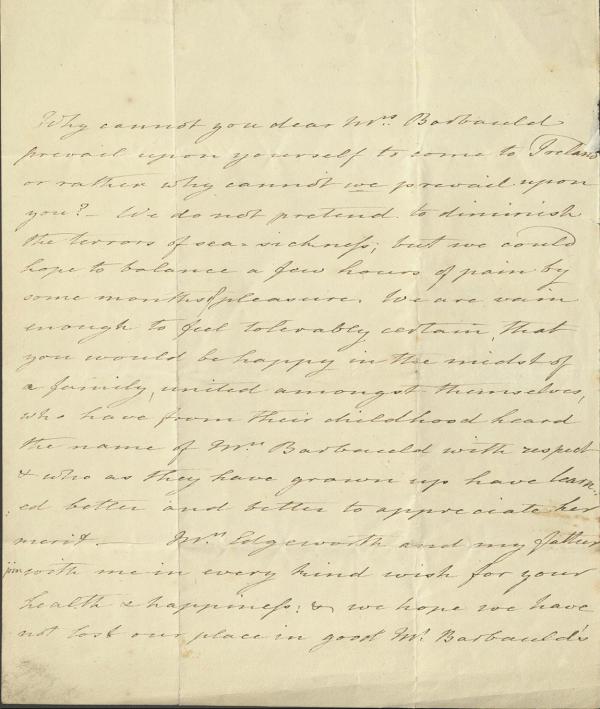 Why cannot you dear Mrs. Barbauld
prevail upon yourself to come to Ireland
or rather why cannot we prevail upon
you? – We do not pretend to diminish
the terrors of sea-sickness; but we could
hope to balance a few hours of pain by
some months of pleasure. We are vain
enough to feel tolerably certain, that
you would be happy in the midst of
a family, united amongst themselves,
who have from their childhood heard
the name of Mrs. Barbauld with respect
& who as they have grown up have learn-
ed better and better to appreciate her
merit. — Mrs. Edgeworth and my father
join with me in every kind wish for your
health & happiness: & we hope we have
not lost our place in good Mr. Barbauld's